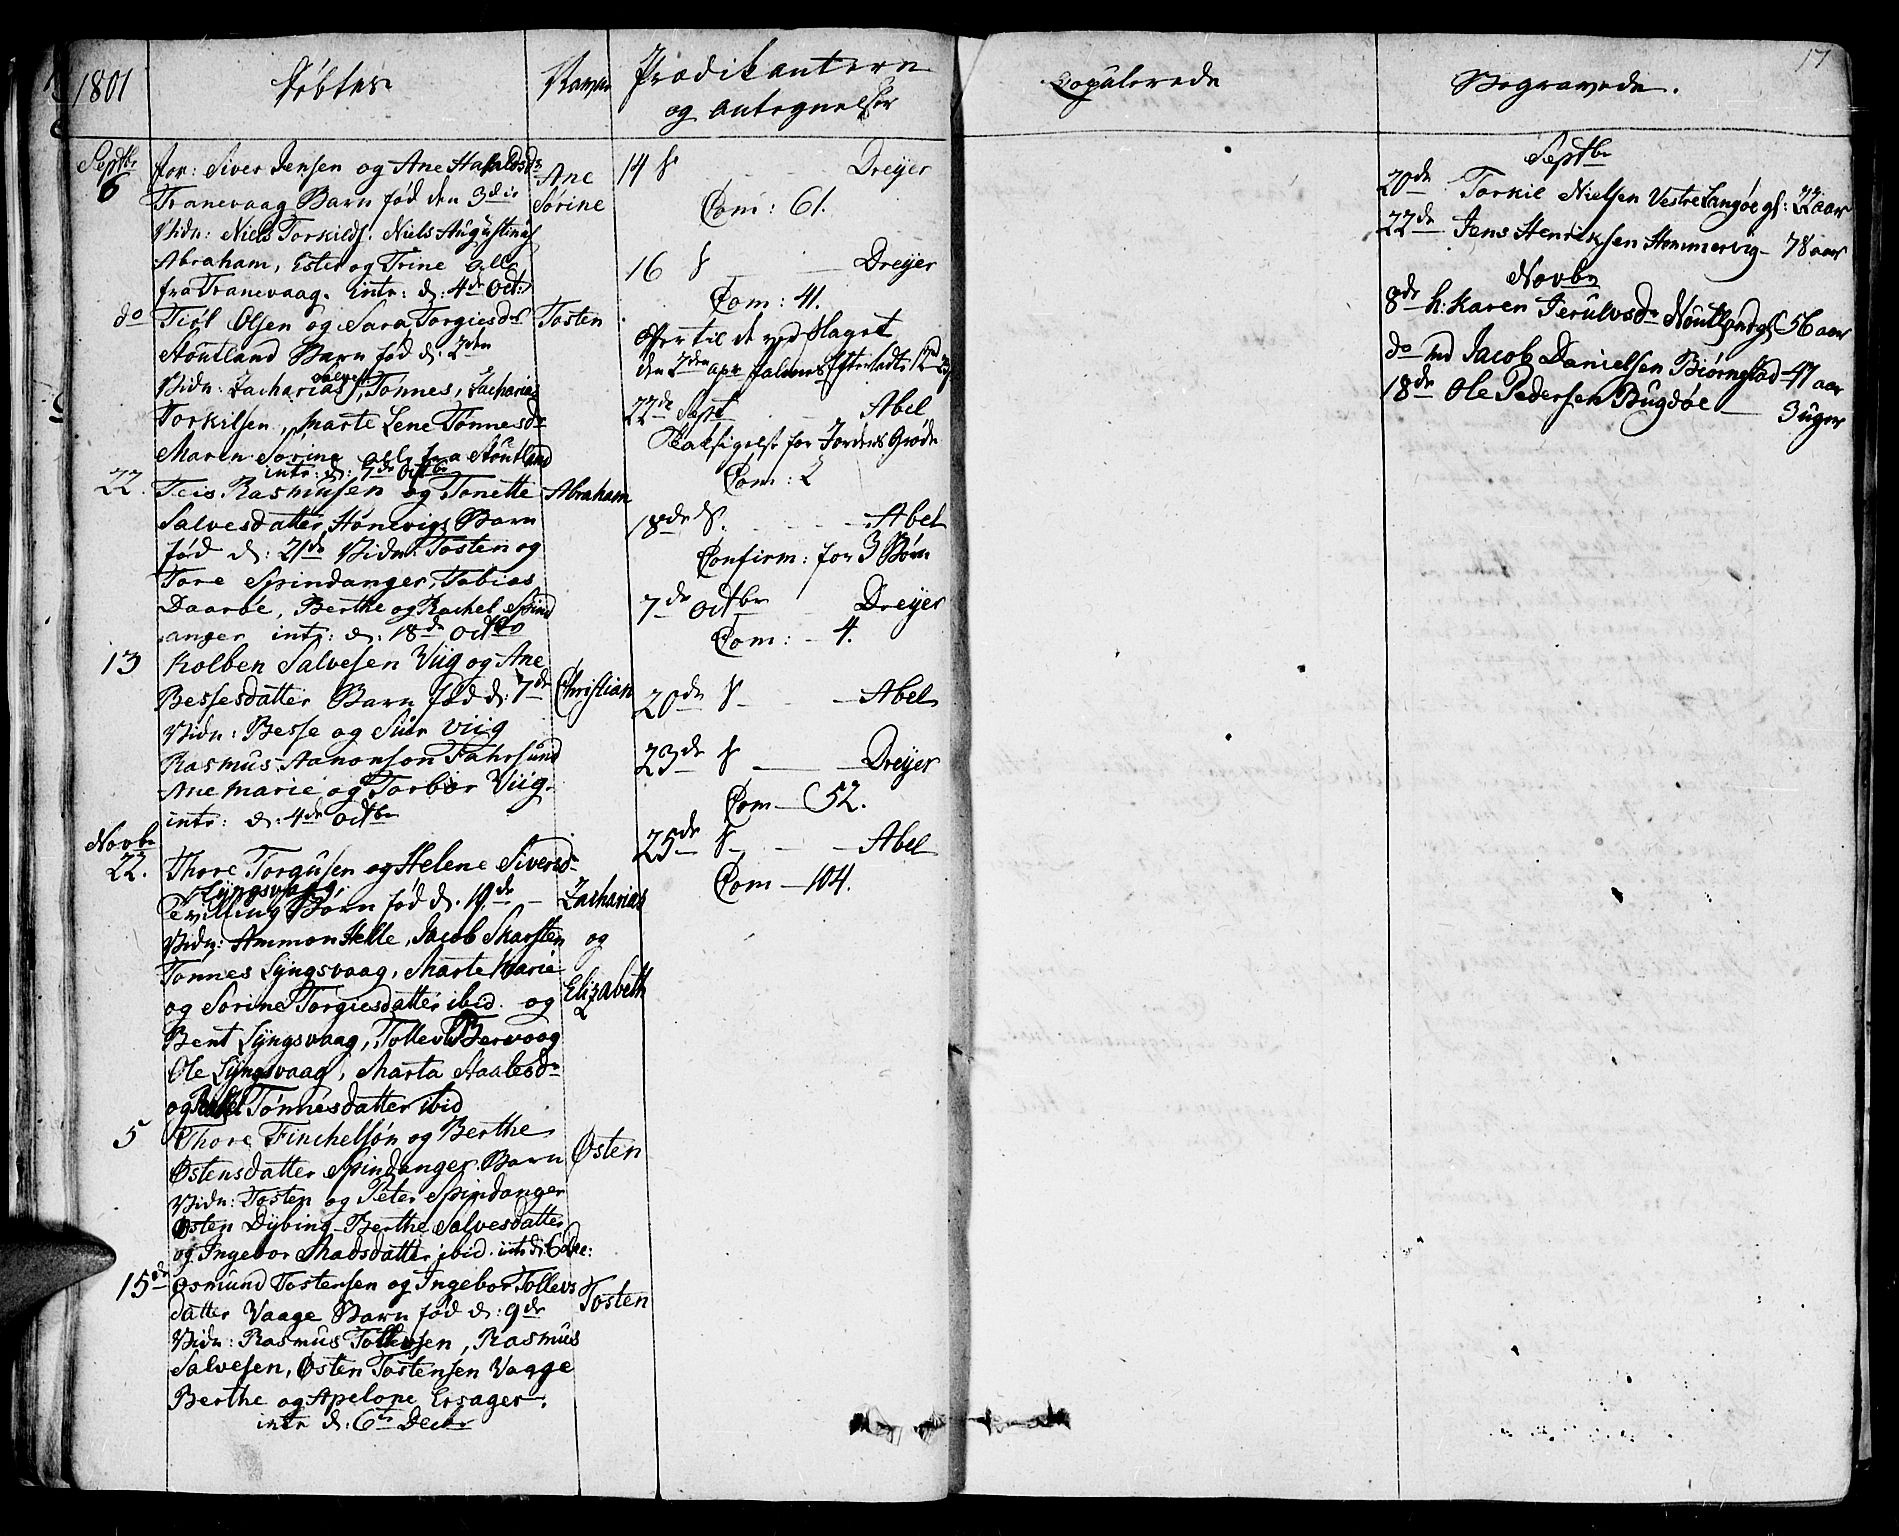 1801
Døbtes
Navne
Prædikanterne
og antegnelser
Septbr
6
for: Siver Jensen og Ane Haraldsdr
Tranevaag Barn fød den 3die
Vidn: Niels Torkilds: Niels Augustinus
Abraham, Ester og Trine alle
fra Tranevaag. intr: d: 4de Oct:
Ane
Sørine
do
Tiøl Olsen og Sara Torgiesdr
Stoutland Barn fød d: 2den
Vidn: Zacharias Salves, Tønnes, Zacharias
Torkilsen, Marte Lene Tønnesdr
Maren Sorine alle fra Stoutland
intr: d: 7de Octbr
Tosten
22.
Teis Rasmusen og Tonette
Salvesdatter, Hønevigs Barn
fød d: 21de Vidn: Tosten og
Tore Spindanger, Tobias
Daarøe, Berthe og Rachel Spind
anger intr: d: 18de Octbr
Abraham
13
Kolben Salvesen Viig og Ane
Bessesdatter Barn fød d: 7de
Vidn: Besse og Siur Viig
Rasmus Aanonson Fahrsund
Ane Marie og Torbor Viig.
intr: d: 4de Octbr
Christian
Novbr
22.
Thore Torgusen og Helene Siversdr
Lyngsvaag
Tvilling Børn fød d. 19de
Vidn: Ammon Helle, Jacob Skarsten
Tønnes Lyngsvaag, Marte Marie
og Sorine Torgiesdatter ibid. og
Bent Lyngsvaag, Tollev Bervaag
Ole Lyngsvaag, Marta Staalesdr
og Rakel Tønnesdatter ibid
Zacharias
og
Elizabeth
5
Thore Finchelsøn og Berthe
Østensdatter Spindanger Barn
Vidn: Tosten og Peter Spindanger
Østen Dybing Berthe Salvesdatter
og Ingebor Madsdatter ibid. intr d: 6 Dec:
Østen
15de
Osmund Tostensen og Ingebor Tollevs
datter Vaage Barn fød d: 9de
Vidn: Rasmus Tollevsen, Rasmus
Salvesen, Østen Tostensen Vaage
Berthe og Apelone Ersager.
intr d: 6te Decbr
Tosten
14 S. Dreyer
Com: 61.
16 S Dreyer
Com: 41.
Offer til de ved Slaget
den 2den apr
22de Sept Abel
Taksigelse for Jordens Grøde
Com: 2
18de S. Abel
Confirm: for 3 Børn
7de Octbr Dreyer
Com: 4.
20de S Abel
23de S Dreyer
Com 52.
25de S Abel
Com 104.
Copulerede
Begravede.
17
Septbr
20de Torkil Nielsen Vestre Langøe gl: 22 aar
22de Jens Henriksen Hummervig 78 aar
Novbr
8de h: Karen Jerulvsdr Noutland gl 56 aar
do Jacob Danielsen Biørnestad 47 aar
18de Ole Pedersen Bugdøe
3 uger